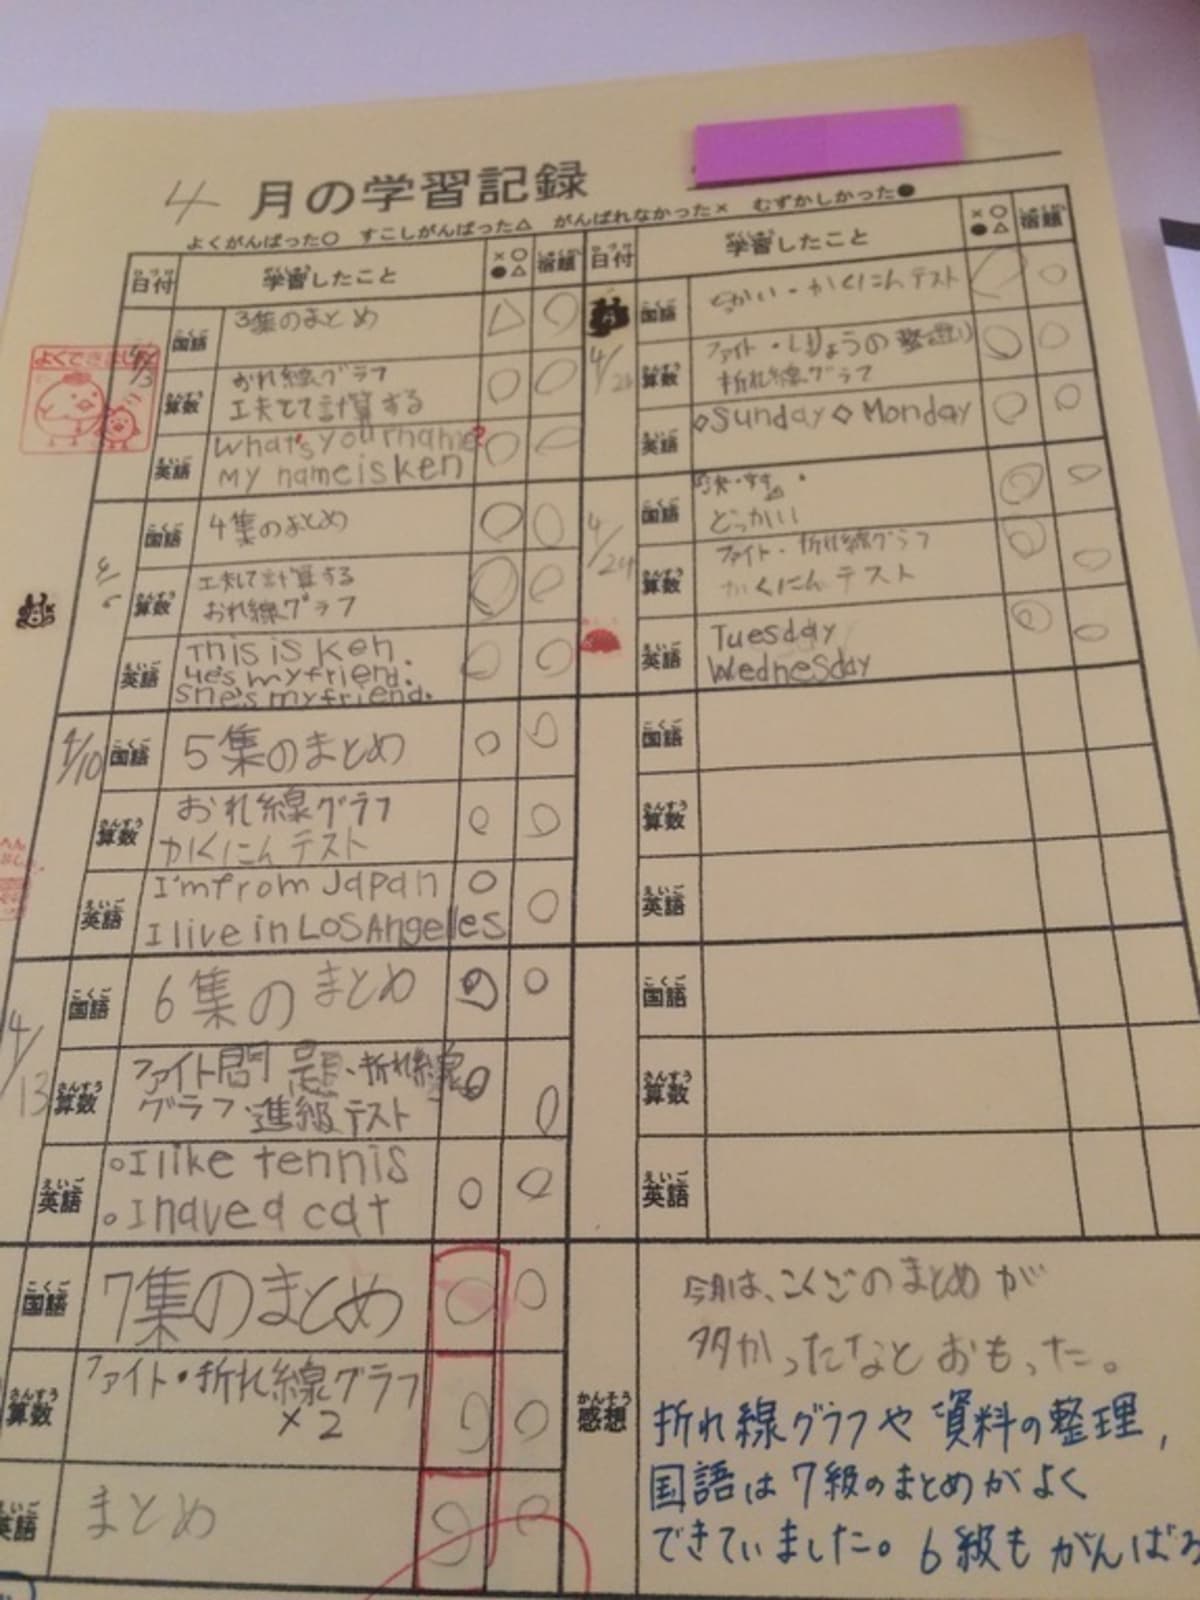 4 月の学習記録
よくがんばった○ すこしがんばった△ がんばれなかった× むずかしかった●
日付 学習したこと ×○●△ 宿題
国語 3集のまとめ
算数 おれ線グラフ
工夫して計算する
英語 What's your name?
My name is ken
国語 4集のまとめ
算数 工夫して計算する
おれ線グラフ
英語 This is Ken.
He's my friend.
She's my friend.
4/10 国語 5集のまとめ
算数 おれ線グラフ
かくにんテスト
英語 I'm from Japan
I live in Los Angeles
4/13 国語 6集のまとめ
算数 ファイト問題・折れ線
グラフ進級テスト
英語 ○I like tennis
○I haved a cat
国語 7集のまとめ
算数 ファイト・折れ線グラフ
×2
英語 まとめ
日付 学習したこと ×○●△ 宿題
国語 かくにんテスト
算数 ファイト・しりょうの整理
折れ線グラフ
英語 ◇Sunday◇Monday
4/24 国語
どっかい
算数 ファイト・折れ線グラフ
かくにんテスト
英語 Tuesday
Wednesday
国語
算数
英語
国語
算数
英語
感想
今月は、こくごのまとめが
多かったなとおもった。
折れ線グラフや資料の整理,
国語は7級のまとめがよく
できていました。6級もがんばろ